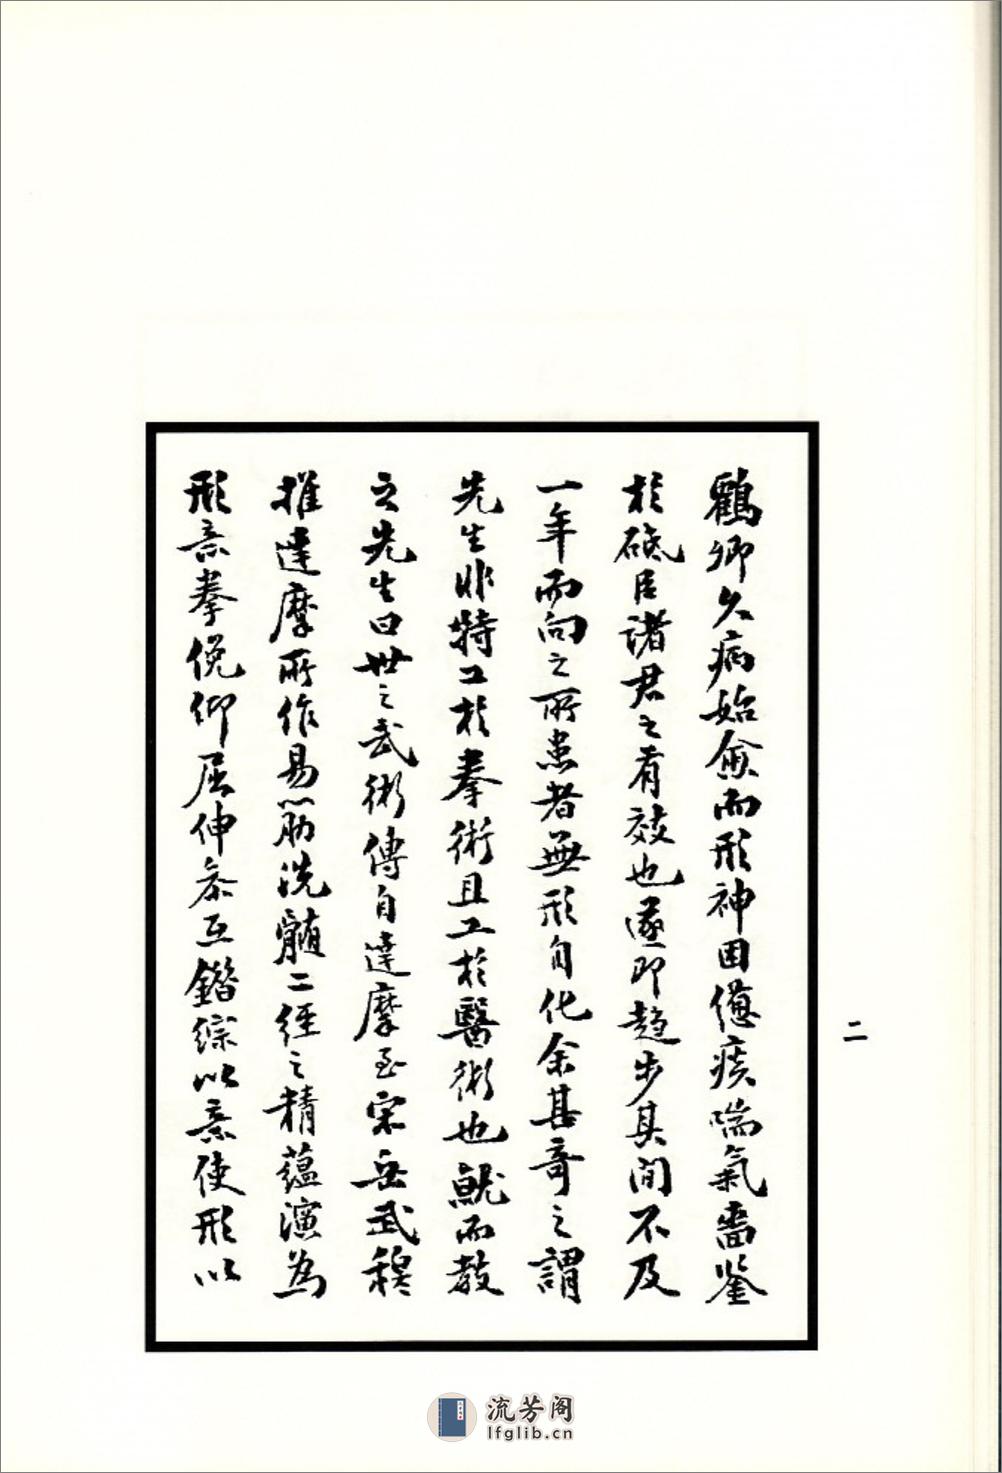 鶴卿久病始愈而形神困憊痰喘氣嗇鑒
於砥臣諸君之有效也遂即趨步其間不及
一年而向之所患者無形自化余甚奇之謂
先生非特工於拳術且工於醫術也就而教
之先生曰世之武術傳自達摩至宋岳武穆
推達摩所作易筋洗髓二經之精蘊演爲
形意拳俛仰屈伸叅互錯綜以意使形以
二
流芳阁
lfglib.cn